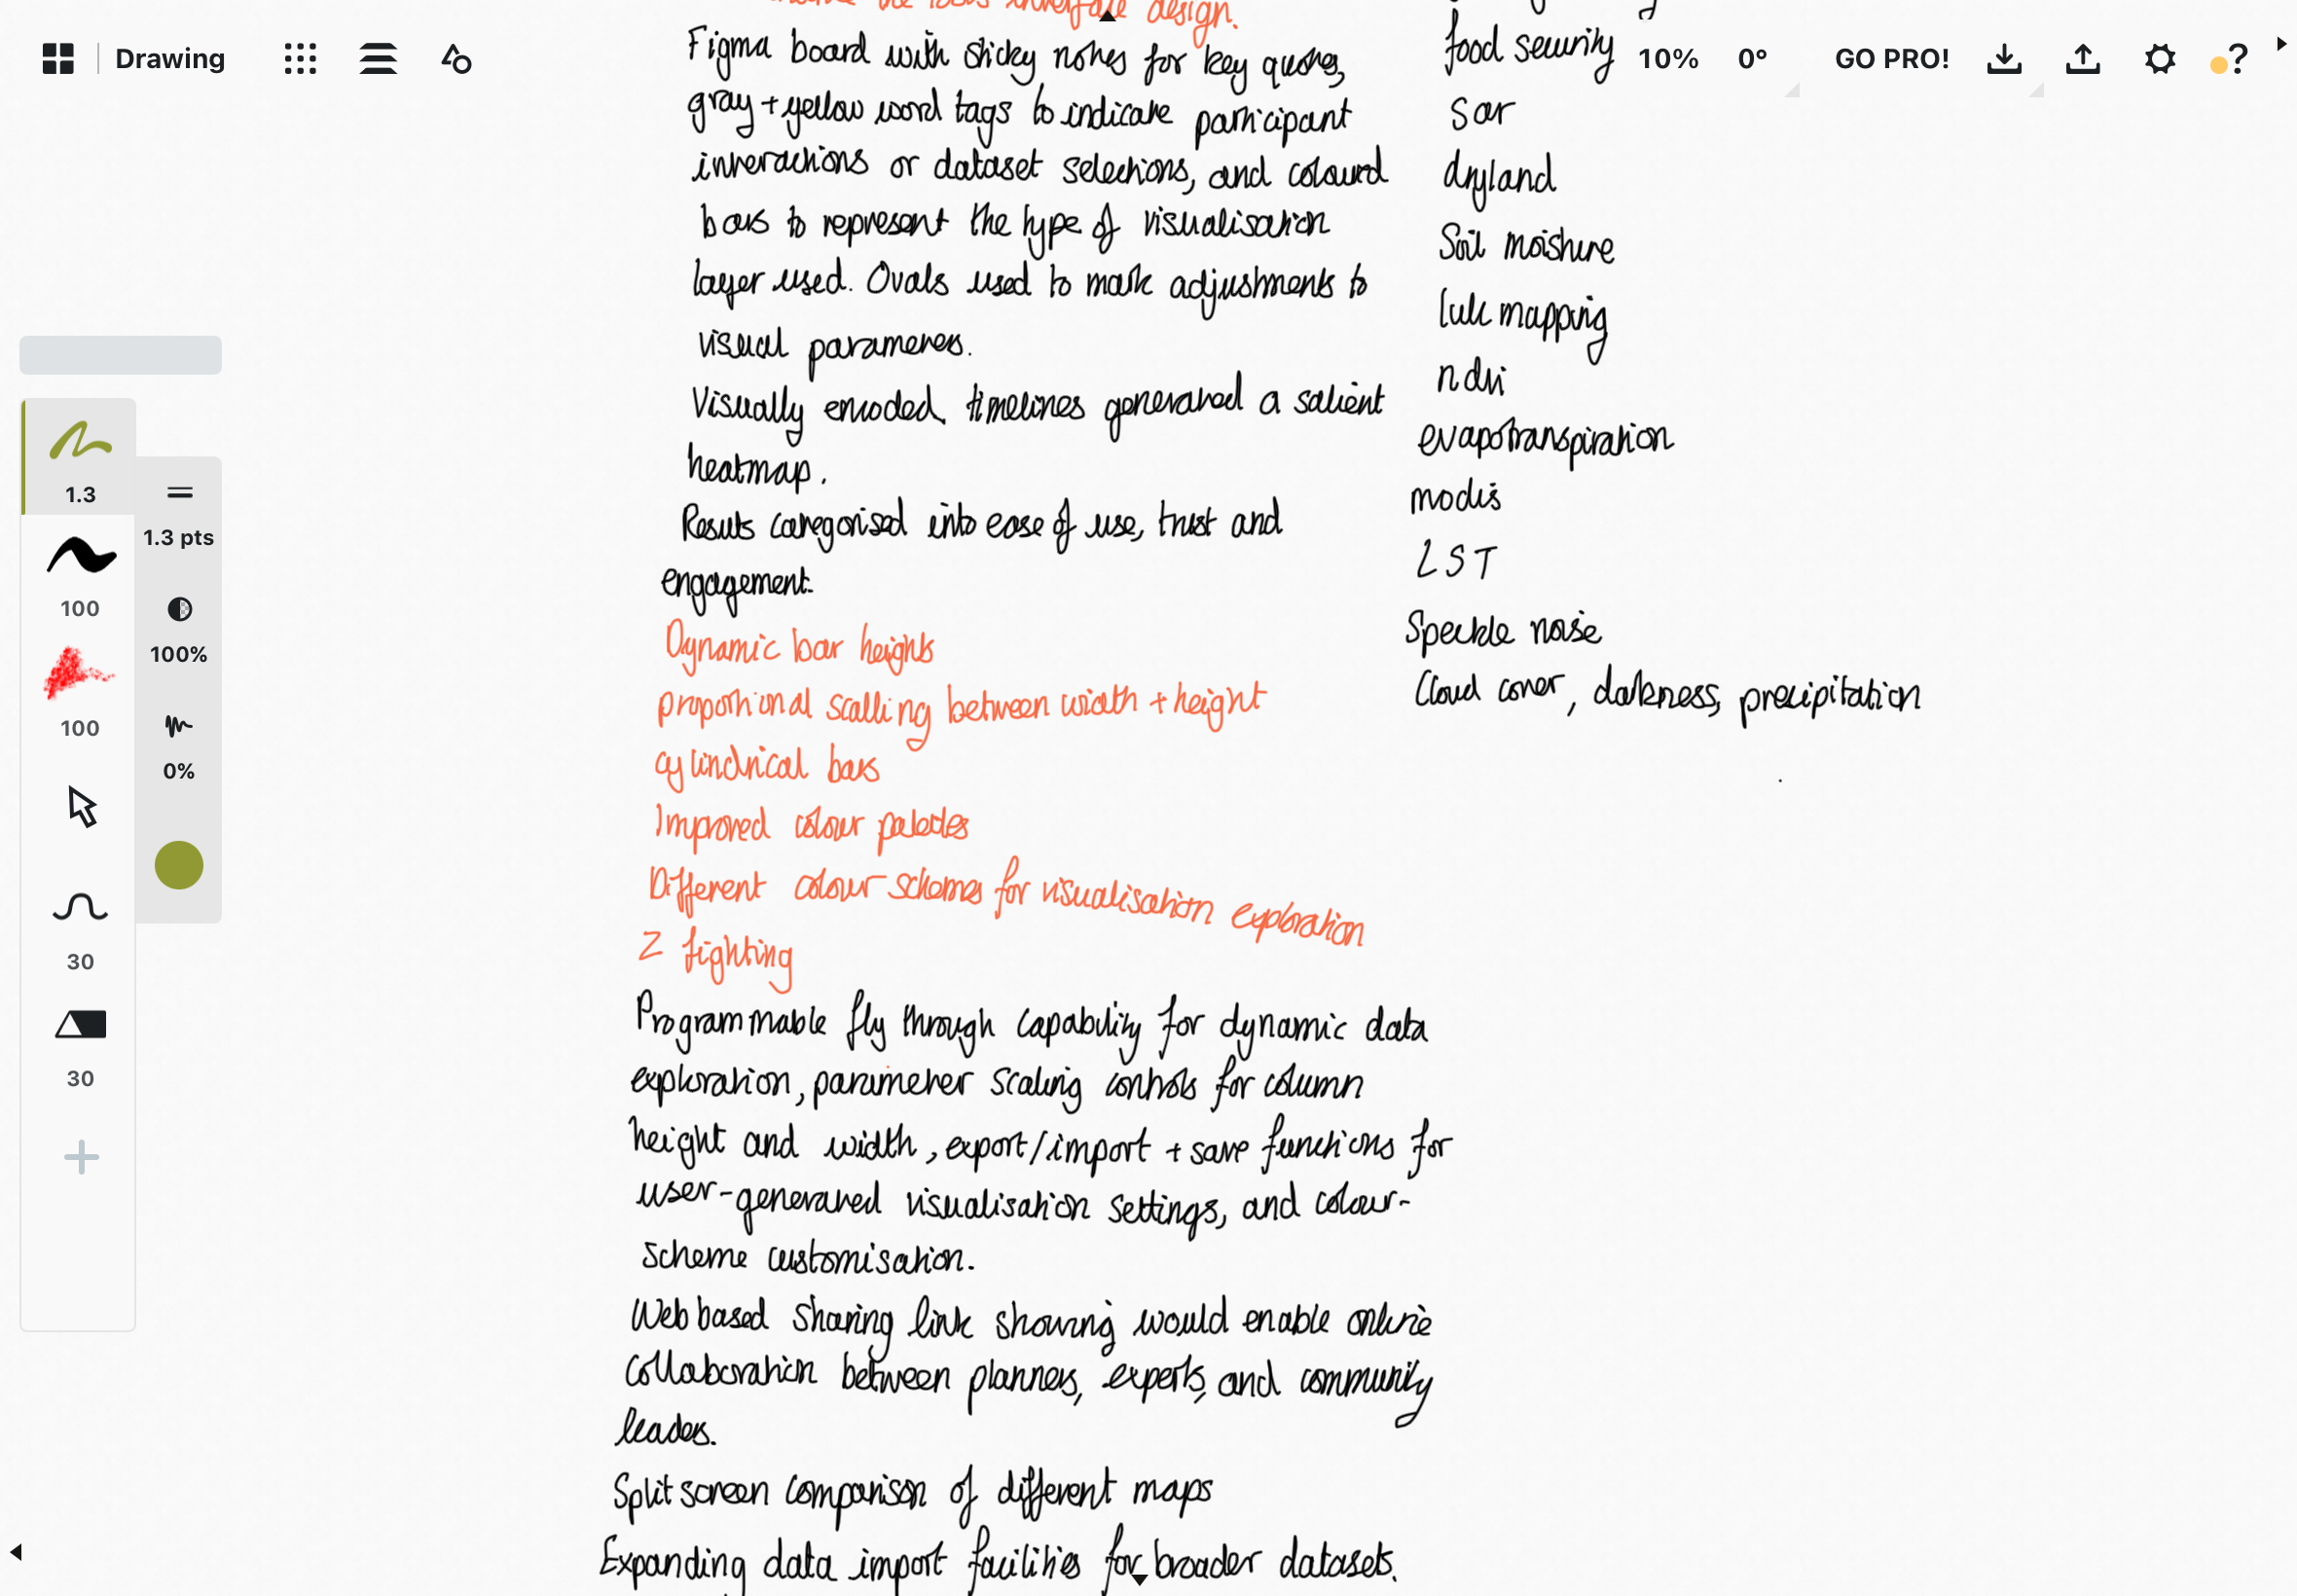 Drawing
10%
0°
GO PRO!
?
1.3
100
100
30
30
1.3 pts
100%
0%
the interface design.
Figma board with sticky notes for key quotes,
gray + yellow word tags to indicate participant
interactions or dataset selections, and coloured
bars to represent the type of visualisation
layer used. Ovals used to mark adjustments to
visual parameters.
Visually encoded timelines generated a salient
heatmap.
Results categorised into ease of use, trust and
engagement.
Dynamic bar heights
proportional scalling between width + height
cylindrical bars
Improved colour palettes
Different colour schemes for visualisation exploration
Z fighting
Programmable fly through capability for dynamic data
exploration, parameter scaling controls for column
height and width, export/import + save functions for
user-generated visualisation settings, and colour-
scheme customisation.
Web based sharing link showing would enable online
collaboration between planners, experts, and community
leaders.
Split screen comparison of different maps
Expanding data import facilities for broader datasets.
food security
sar
dryland
Soil moisture
lulc mapping
ndvi
evapotranspiration
modis
LST
Speckle noise
Cloud cover, darkness, precipitation